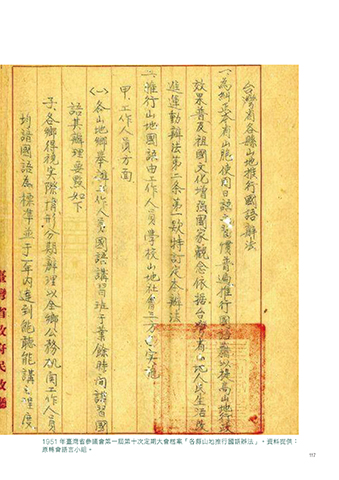 台灣省各縣山地推行國語辦法
一、為糾正本省山胞使用日語之習慣普遍推行國語藉以提高山地行政
效果普及祖國文化增强國家觀念依据台灣省山地人民生活改
進運動辦法第二条第一款特訂定本辦法
二、推行山地國語由工作人員學校山地社會三方面实施
甲、工作人員方面
㈠各山地鄉舉辦工作人員國語講習班于業餘時间講習國
語其辦理要點如下
子、各鄉得視实際情形分期辦理以全鄉公務机関工作人員
均講國語為標準並于一年內達到能聽能講之程度
臺灣省政府民政廳
1951年臺灣省參議會第一屆第十次定期大會檔案「各縣山地推行國語辦法」。資料提供：
原轉會語言小組。